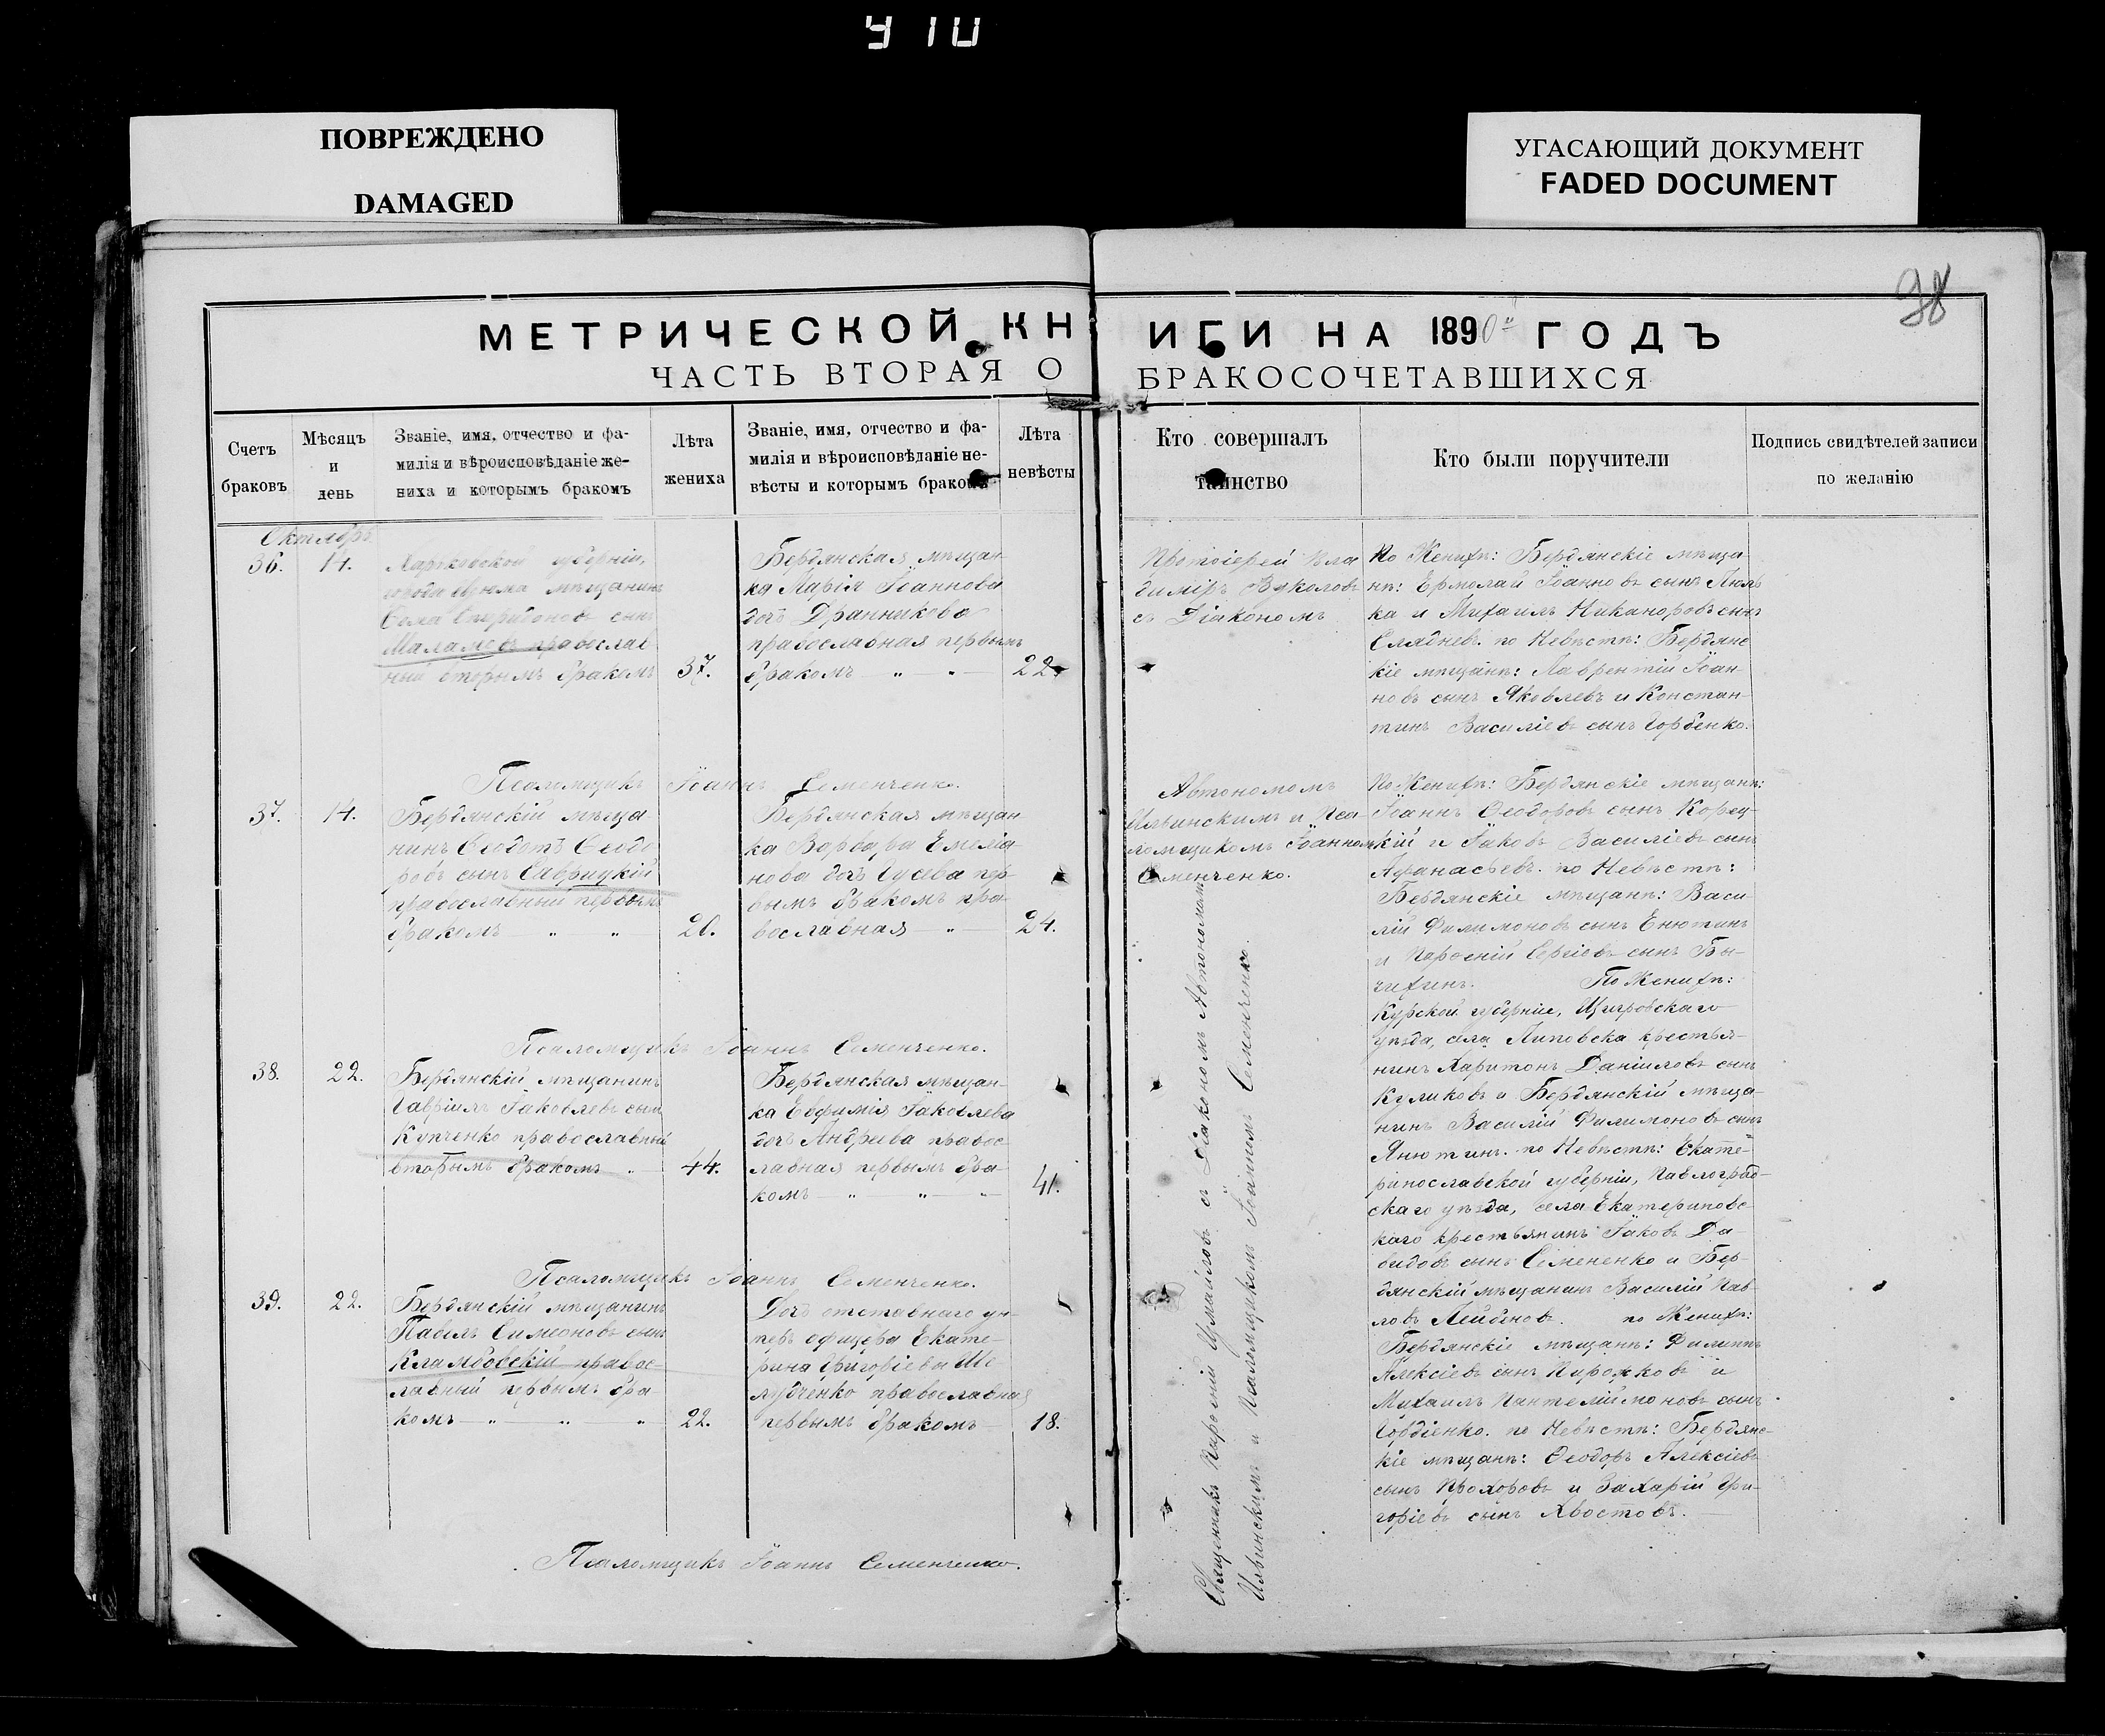 910
ПОВРЕЖДЕНО
DAMAGED
УГАСАЮЩИЙ ДОКУМЕНТ
FADED DOCUMENT
98
МЕТРИЧЕСКОЙ КНИГИ НА 1890й ГОДЪ
ЧАСТЬ ВТОРАЯ О БРАКОСОЧЕТАВШИХСЯ
Счетъ
браковъ
Мѣсяцъ
и
день
Званіе, имя, отчество и фа-
милія и вѣроисповѣданіе же-
ниха и которымъ бракомъ
Лѣта
жениха
Званіе, имя, отчество и фа-
милія и вѣроисповѣданіе не-
вѣсты и которымъ бракомъ
Лѣта
невѣсты
Кто совершалъ
таинство
Кто были поручители
Подпись свидѣтелей записи
по желанію
Октябрь
36.
14.
Харьковской губерніи,
мѣщанинъ
Спиридоновъ сынъ
православ
ный вторымъ бракомъ
37.
Бердянская мѣщан
ка Марія Іоаннова
дочь Дранникова
православная первымъ
бракомъ
22.
Протоіерей Вла
димиръ Вуколовъ
съ Діакономъ
Автономомъ
Ильинскимъ и Пса
ломщикомъ Іоанномъ
Семенченко.
По Женихѣ: Бердянскіе мѣща
нѣ: Ермолай Іоанновъ сынъ Люль
ка и Михаилъ Никаноровъ сынъ
по Невѣстѣ: Бердянс
кіе мѣщанѣ: Лаврентій Іоан
новъ сынъ Яковлевъ и Констан
тинъ Василіевъ сынъ Горбенко.
Псаломщикъ Іоаннъ Семенченко.
37.
14.
Бердянскій мѣща
нинъ Ѳеодотъ Ѳеодо
ровъ сынъ Саврицкій
православный первымъ
бракомъ
26.
Бердянская мѣщан
ка Варвара Емелiа
нова дочь Гусева пер
вымъ бракомъ пра
вославная
24.
По Женихѣ: Бердянскіе мѣщанѣ:
Іоаннъ Ѳеодоровъ сынъ Кориц
кій и Іаковъ Василіевъ сынъ
Афанасьевъ. по Невѣстѣ:
Бердянскіе мѣщанѣ: Васи
лій Филимоновъ сынъ Енютинъ
и Парѳеній Сергіевъ сынъ Бы-
чихинъ.
Псаломщикъ Іоаннъ Семенченко.
38.
22.
Бердянскій мѣщанинъ
Гавріилъ Іаковлевъ сынъ
Купченко православный
вторымъ бракомъ
44.
Бердянская мѣщан-
ка Евфимія Іаковлева
дочь Андреева правос
лавная первымъ бра-
комъ
41.
По Женихѣ:
Курской губерніи, Щигровскаго
уѣзда, села Липовска крестья-
нинъ Харитонъ Даніиловъ сынъ
Куликовъ и Бердянскій мѣща-
нинъ Василій Филимоновъ сынъ
Янютинъ. по Невѣстѣ: Екате-
ринославской губерніи, Павлоград-
скаго уѣзда, села Екатериновс-
каго крестьянинъ Іаковъ Да-
видовъ сынъ Семененко и Бер-
дянскій мѣщанинъ Василій Пав-
ловъ Лейбеновъ.
Псаломщикъ Іоаннъ Семенченко.
39.
22.
Бердянскій мѣщанинъ
Павелъ Симеоновъ сынъ
Кламбовскій правос-
лавный первымъ бра-
комъ
22.
Дочь отставнаго ун-
теръ офицера Екате-
рина Григоріева Ше-
лудченко православная
первымъ бракомъ
18.
по Женихѣ:
Бердянскіе мѣщанѣ: Филиппъ
Алексіевъ сынъ Пирожковъ и
Михаилъ Пантелiимоновъ сынъ
Гордіенко. по Невѣстѣ: Бердянс-
кіе мѣщанѣ: Ѳеодоръ Алексіевъ
сынъ Прохоровъ и Захарій Гри-
горіевъ сынъ Хвостовъ.
Священникъ Парѳеній Измайловъ съ Діакономъ Автономомъ
Ильинскимъ и Псаломщикомъ Іоанномъ Семенченко.
Псаломщикъ Іоаннъ Семенченко.